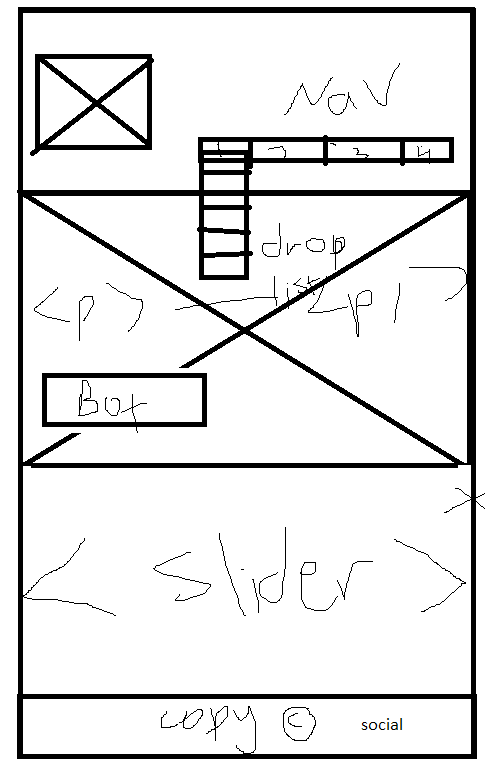 Nav
1 2 3 4
drop
list
<p> <p1
Box
< slider >
copy © social